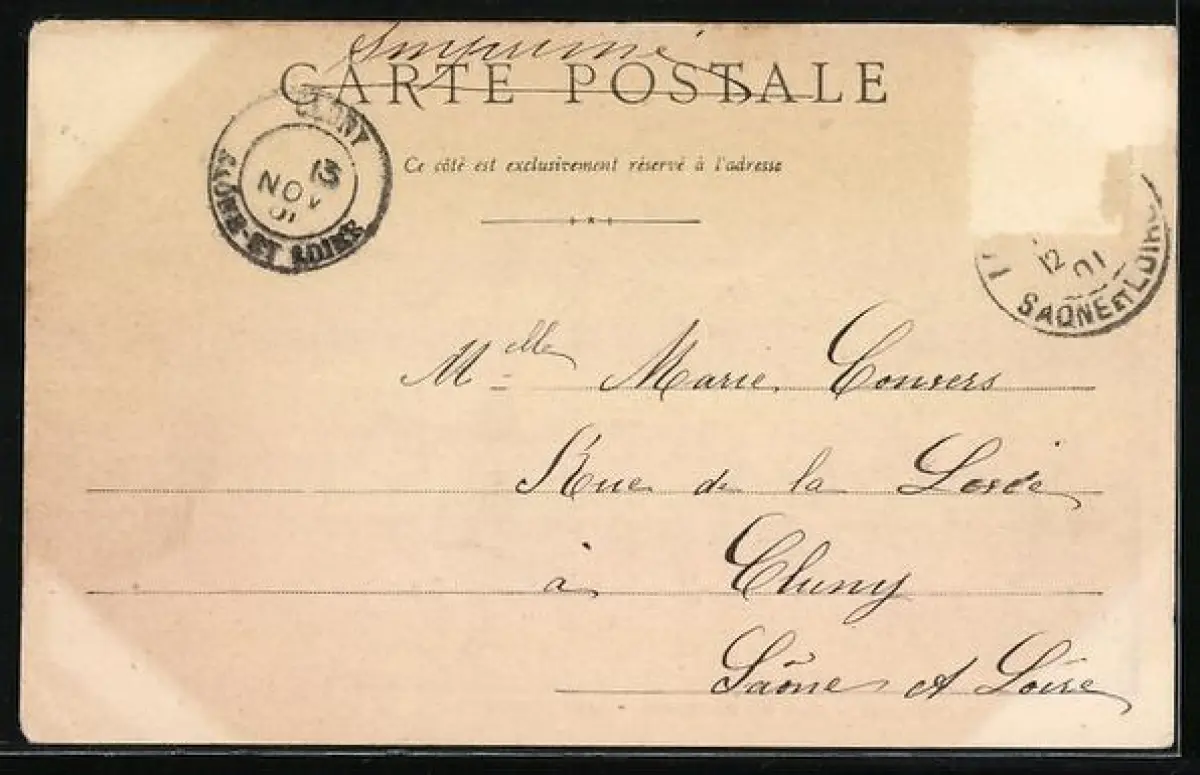 Imprimé
CARTE POSTALE
Ce côté est exclusivement réservé à l'adresse
CLUNY
13
NOV
01
SAÔNE-ET-LOIRE
12
01
SAONE ET LOIRE
Mlle Marie Convers
Rue de la
à Cluny
Saône et Loire